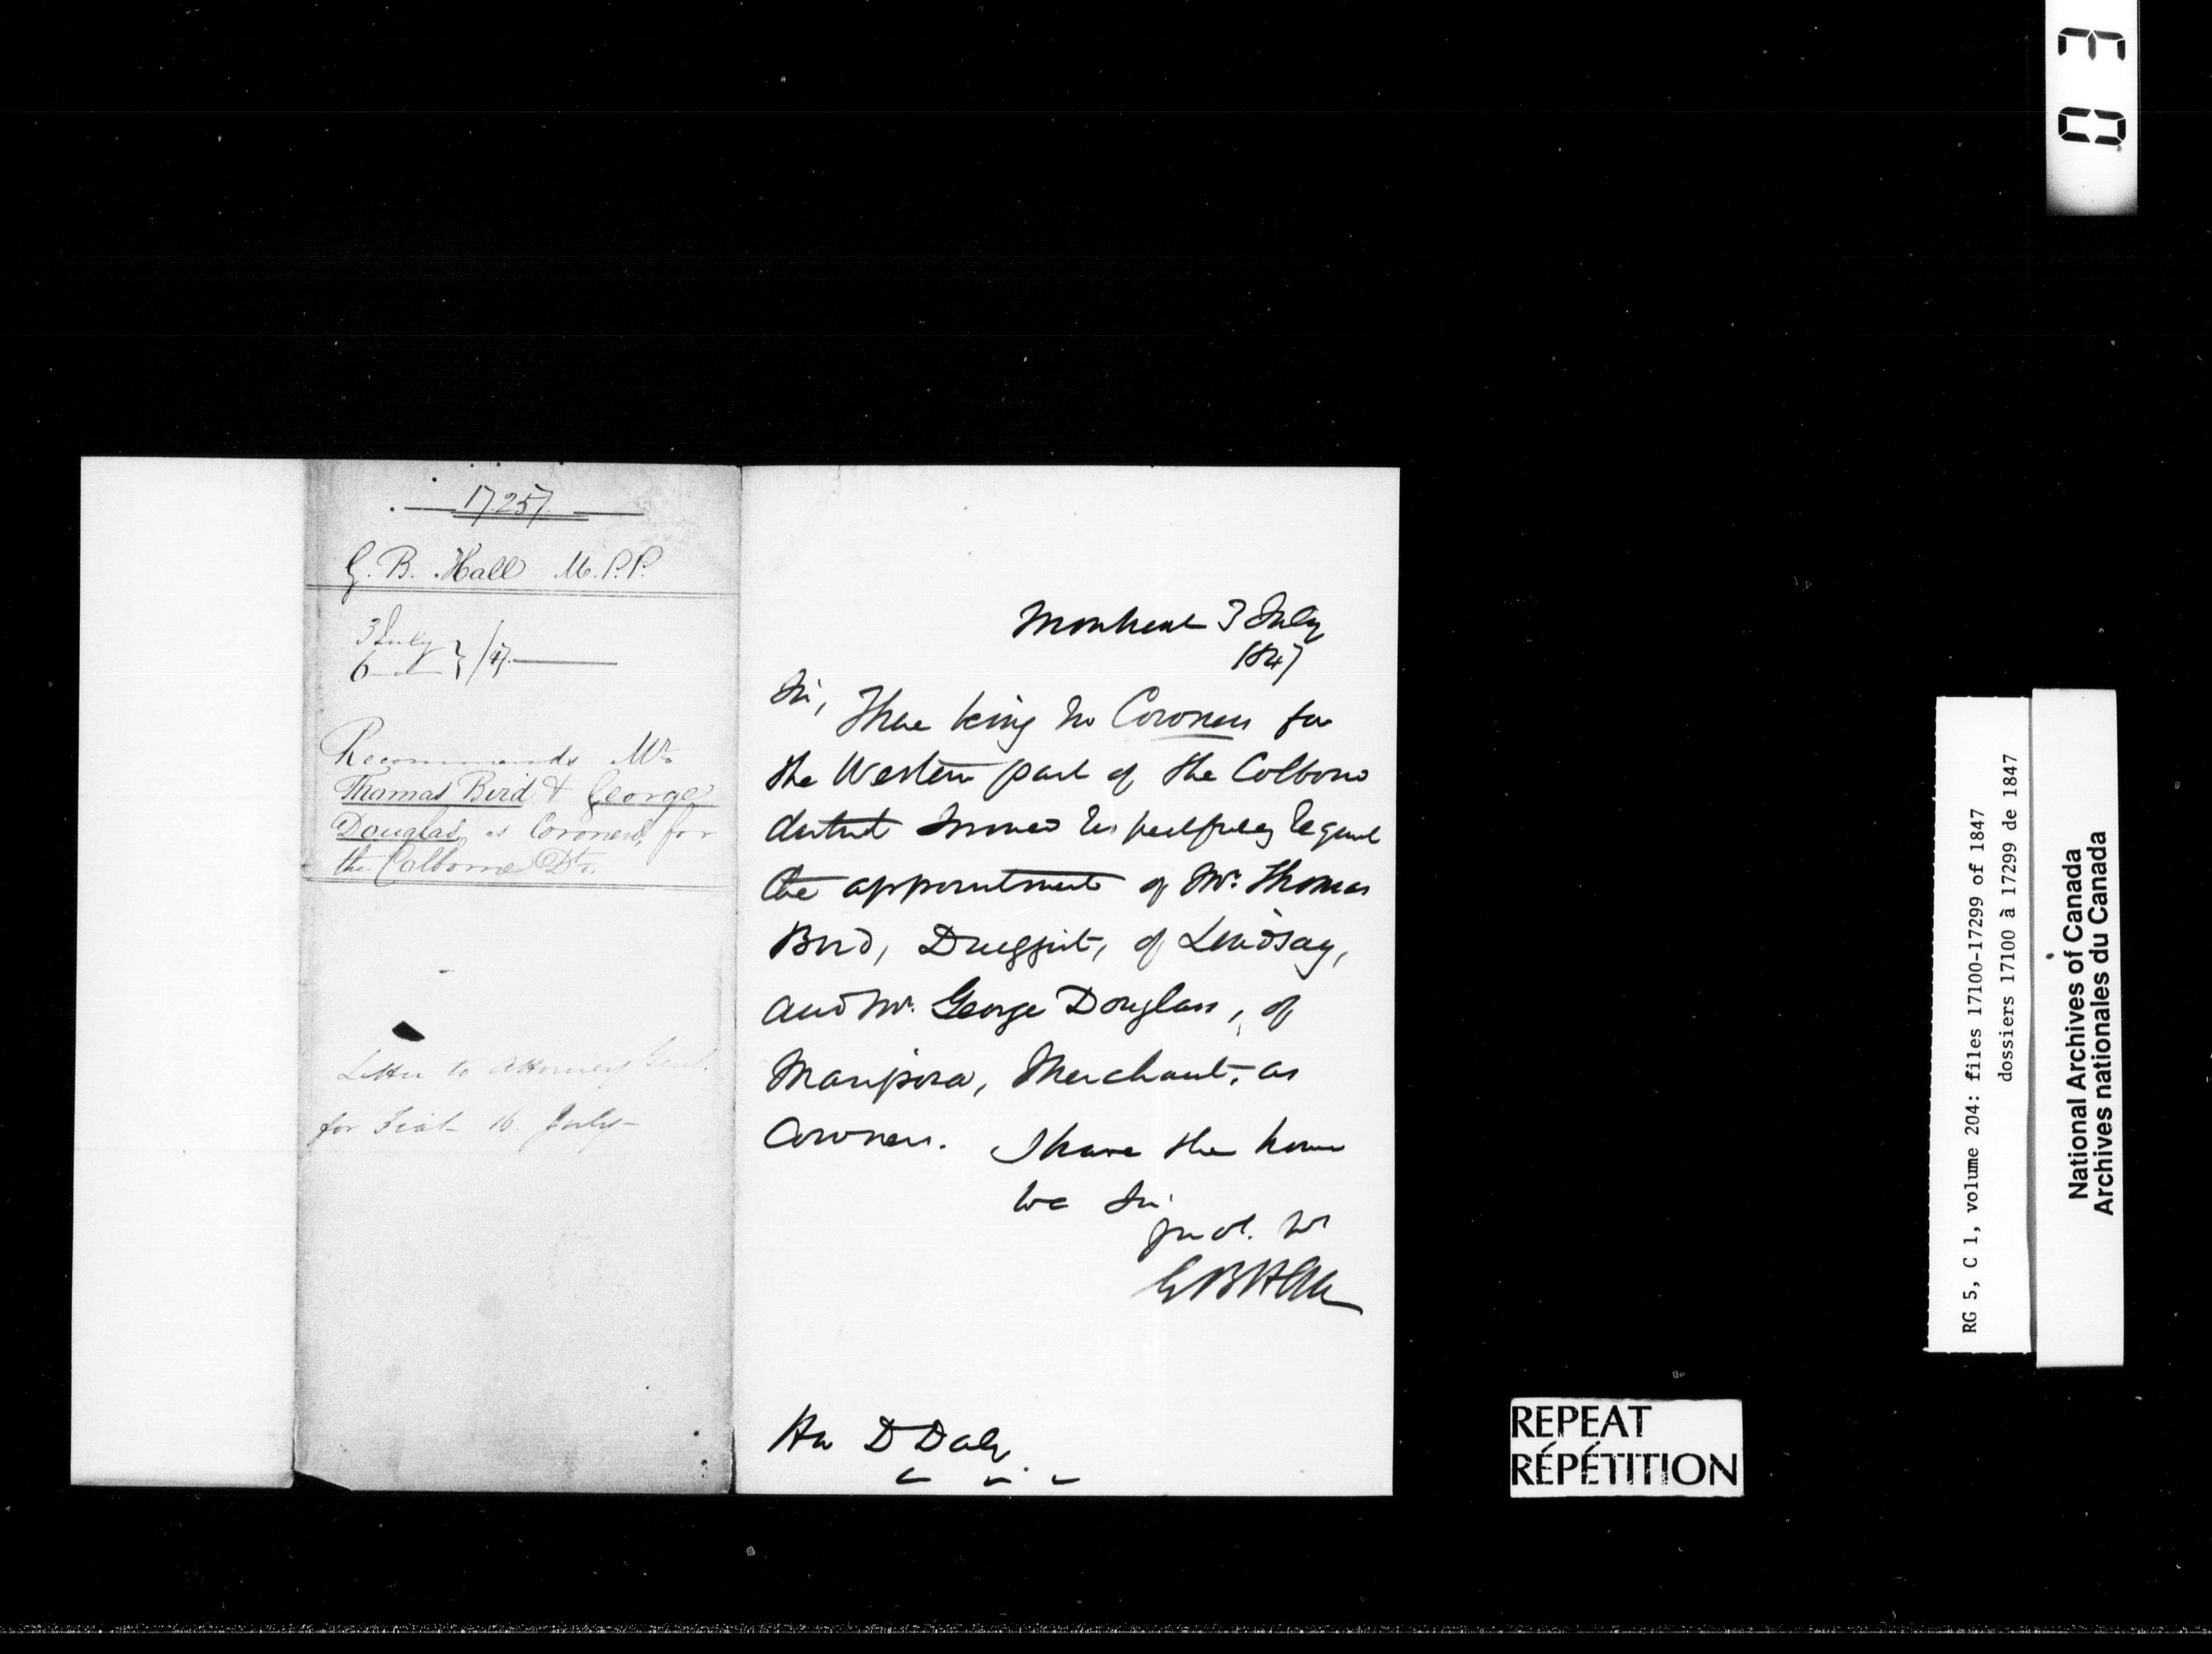 17.257.
G. B. Hall M.P.P.
3 July
6 " } /47.
Recommends Mr.
Thomas Bird & George
Douglas, as Coroners, for
the Colborne Dt.
Letter to Attorney Genl.
for Fiat 16 July
Montreal 3 July
1847
Sir,
There being no Coroners for
the Western part of the Colborne
district I would respectfully request
the appointment of Mr. Thomas
Bird, Druggist, of Lindsay,
and Mr. George Douglass, of
Mariposa, Merchant, as
Coroners. I have the honor
to be Sir
Your ob. St
G B Hall
Hon D Daly
REPEAT
RÉPÉTITION
RG 5, C 1, volume 204: files 17100-17299 of 1847
dossiers 17100 à 17299 de 1847
National Archives of Canada
Archives nationales du Canada